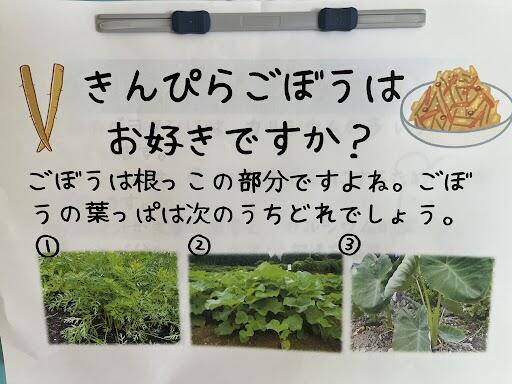 きんぴらごぼうは
お好きですか?
ごぼうは根っこの部分ですよね。ごぼ
うの葉っぱは次のうちどれでしょう。
① ② ③